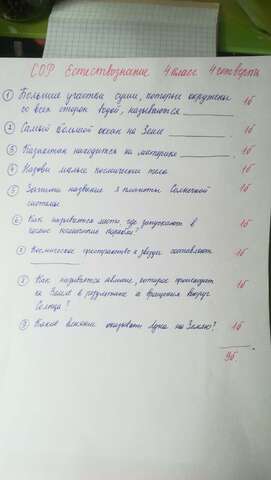 СОР Естествознание 4 класс 4 четверть
① Большие участки суши, которые окружены
со всех сторон водой, называются ________ 1б
② Самый большой океан на Земле ________ 1б
③ Казахстан находится на материке ________. 1б
④ Назови малые космические тела 1б
⑤ Запиши название 3 планеты Солнечной
системы 1б
⑥ Как называется место где запускают в
космос космические корабли? 1б
⑦ Космическое пространство и звезды составляют
________ 1б
⑧ Как называется явление, которое происходит
на Земле в результате её вращения вокруг
Солнца? 1б
⑨ Какое влияние оказывает Луна на Землю? 1б
9б.